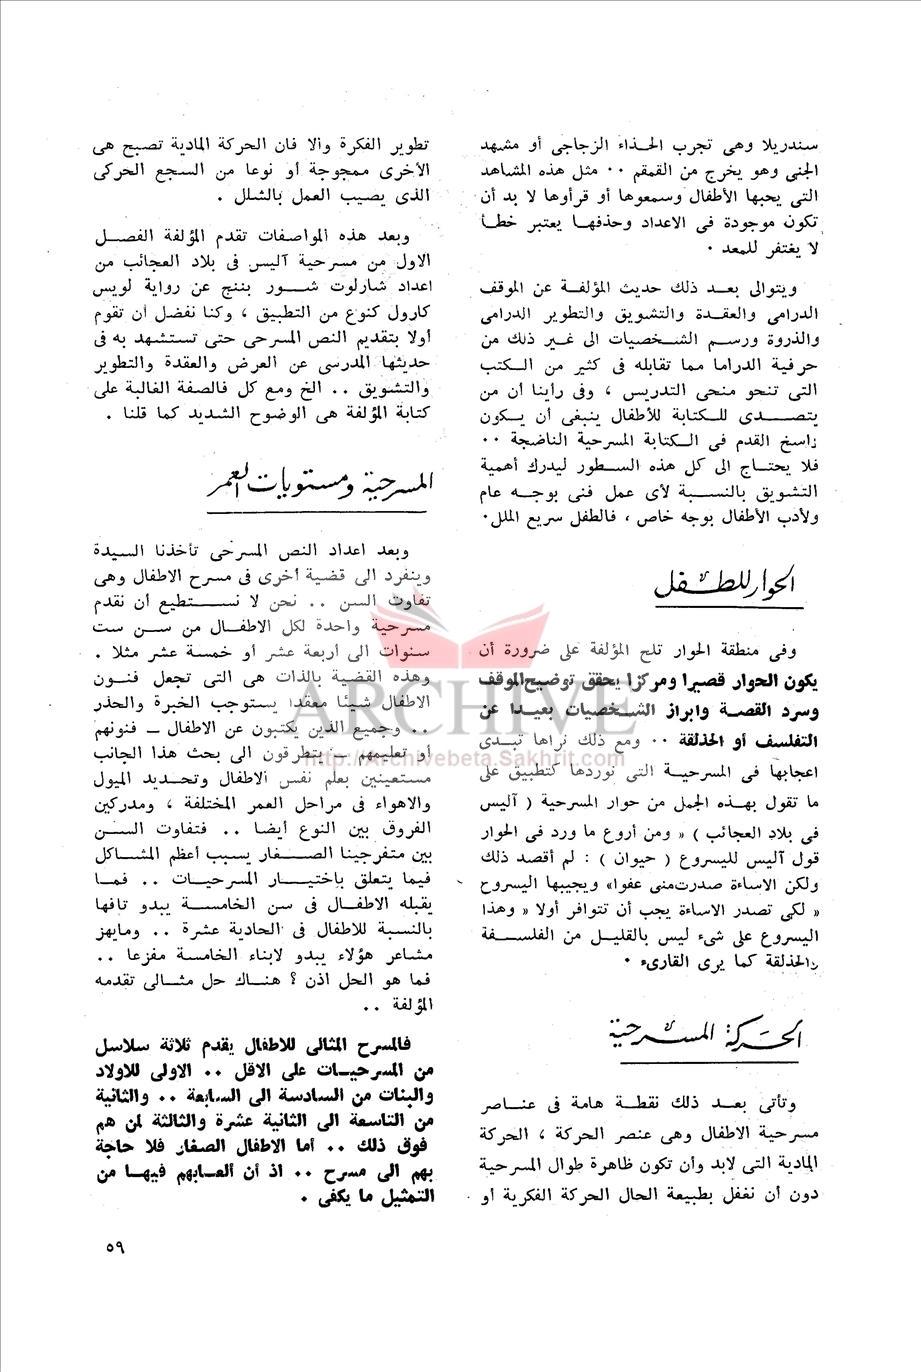 سندريلا وهى تجرب الحذاء الزجاجى أو مشهد
الجنى وهو يخرج من القمقم ٠٠ مثل هذه المشاهد
التى يحبها الأطفال وسمعوها أو قرأوها لا بد أن
تكون موجودة فى الاعداد وحذفها يعتبر خطأ
لا يغتفر للمعد ٠
ويتوالى بعد ذلك حديث المؤلفة عن الموقف
الدرامى والعقدة والتشويق والتطوير الدرامى
والذروة ورسم الشخصيات الى غير ذلك من
حرفية الدراما مما تقابله فى كثير من الكتب
التى تنحو منحى التدريس ، وفى رأينا أن من
يتصدى للكتابة للأطفال ينبغى أن يكون
راسخ القدم فى الكتابة المسرحية الناضجة ٠٠
فلا يحتاج الى كل هذه السطور ليدرك أهمية
التشويق بالنسبة لأى عمل فنى بوجه عام
ولأدب الأطفال بوجه خاص ، فالطفل سريع الملل ٠
الحوار للطفل
وفى منطقة الحوار تلح المؤلفة على ضرورة أن
يكون الحوار قصيرا ومركزا يحقق توضيح الموقف
وسرد القصة وابراز الشخصيات بعيدا عن
التفلسف أو الحذلقة ٠٠ ومع ذلك نراها تبدى
اعجابها فى المسرحية التى توردها كتطبيق على
ما تقول بهذه الجمل من حوار المسرحية ( آليس
فى بلاد العجائب ) « ومن أروع ما ورد فى الحوار
قول آليس لليسروع ( حيوان ) : لم أقصد ذلك
ولكن الاساءة صدرت منى عفوا» ويجيبها اليسروح
« لكى تصدر الاساءة يجب أن تتوافر أولا « وهذا
اليسروع على شىء ليس بالقليل من الفلسفة
والحذلقة كما يرى القارىء ٠
الحركة المسرحية
وتأتى بعد ذلك نقطة هامة فى عناصر
مسرحية الاطفال وهى عنصر الحركة ، الحركة
المادية التى لابد وأن تكون ظاهرة طوال المسرحية
دون أن نغفل بطبيعة الحال الحركة الفكرية أو
تطوير الفكرة والا فان الحركة المادية تصبح هى
الأخرى ممجوجة أو نوعا من السجع الحركى
الذى يصيب العمل بالشلل .
وبعد هذه المواصفات تقدم المؤلفة الفصل
الاول من مسرحية آليس فى بلاد العجائب من
اعداد شارلوت شور بننج عن رواية لويس
كارول كنوع من التطبيق ، وكنا نفضل أن تقوم
أولا بتقديم النص المسرحى حتى تستشهد به فى
حديثها المدرسى عن العرض والعقدة والتطوير
والتشويق .. الخ ومع كل فالصفة الغالبة على
كتابة المؤلفة هى الوضوح الشديد كما قلنا .
المسرحية ومستويات العمر
وبعد اعداد النص المسرحى تأخذنا السيدة
وينفرد الى قضية أخرى فى مسرح الاطفال وهى
تفاوت السن .. نحن لا نستطيع أن نقدم
مسرحية واحدة لكل الاطفال من سن ست
سنوات الى أربعة عشر أو خمسة عشر مثلا .
وهذه القضية بالذات هى التى تجعل فنون
الاطفال شيئا معقدا يستوجب الخبرة والحذر
.. وجميع الذين يكتبون عن الاطفال ــ فنونهم
أو تعليمهم ــ يتطرقون الى بحث هذا الجانب
مستعينين بعلم نفس الاطفال وتحديد الميول
والاهواء فى مراحل العمر المختلفة ، ومدركين
الفروق بين النوع أيضا .. فتفاوت السن
بين متفرجينا الصغار يسبب أعظم المشاكل
فيما يتعلق باختيار المسرحيات .. فما
يقبله الاطفال فى سن الخامسة يبدو تافها
بالنسبة للاطفال فى الحادية عشرة .. ومايهز
مشاعر هؤلاء يبدو لابناء الخامسة مفزعا ..
فما هو الحل اذن ؟ هناك حل مثالى تقدمه
المؤلفة ..
فالمسرح المثالى للاطفال يقدم ثلاثة سلاسل
من المسرحيات على الاقل .. الاولى للاولاد
والبنات من السادسة الى السابعة .. والثانية
من التاسعة الى الثانية عشرة والثالثة لمن هم
فوق ذلك .. أما الاطفال الصغار فلا حاجة
بهم الى مسرح .. اذ أن ألعابهم فيها من
التمثيل ما يكفى .
٥٩
ARCHIVE
http://Archivebeta.Sakhrit.com